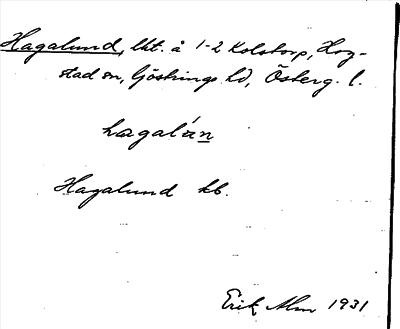 Hagalund, lht. å 1-2 Kolstorp, Hog-
stad sn, Göstrings hd, Österg. l.
hagalún
Hagalund kb.
Erik Alm 1931